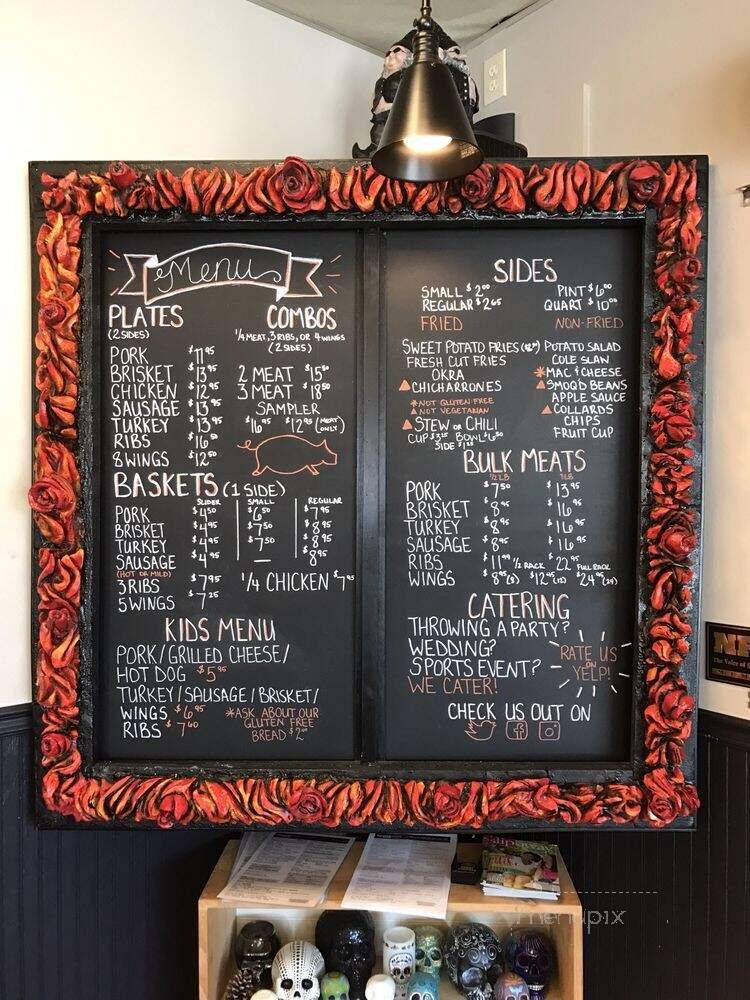 Menu
PLATES
(2 SIDES)
PORK $11.95
BRISKET $13.95
CHICKEN $12.95
SAUSAGE $13.95
TURKEY $13.95
RIBS $16.50
8 WINGS $12.50
COMBOS
1/4 MEAT, 3 RIBS, OR 4 WINGS
(2 SIDES)
2 MEAT $15.50
3 MEAT $18.50
SAMPLER
$16.95 $12.95 (MEAT ONLY)
BASKETS (1 SIDE)
SLIDER SMALL REGULAR
PORK $4.50 $6.50 $7.95
BRISKET $4.95 $7.50 $8.95
TURKEY $4.95 $7.50 $8.95
SAUSAGE $4.95 — $8.95
(HOT OR MILD)
3 RIBS $7.95
5 WINGS $7.25
1/4 CHICKEN $7.95
KIDS MENU
PORK/GRILLED CHEESE/
HOT DOG $5.95
TURKEY/SAUSAGE/BRISKET/
WINGS $6.95
RIBS $7.60
*ASK ABOUT OUR
GLUTEN FREE
BREAD $2.00
SIDES
SMALL $2.00 PINT $6.00
REGULAR $2.65 QUART $10.00
FRIED
SWEET POTATO FRIES
FRESH CUT FRIES
OKRA
CHICHARRONES
*NOT GLUTEN-FREE
NOT VEGETARIAN
STEW OR CHILI
CUP BOWL
SIDE
NON-FRIED
POTATO SALAD
COLE SLAW
*MAC & CHEESE
SMOQ'D BEANS
APPLE SAUCE
COLLARDS
CHIPS
FRUIT CUP
BULK MEATS
1/2 LB 1 LB
PORK $7.50 $13.95
BRISKET $8.95 $16.95
TURKEY $8.95 $16.95
SAUSAGE $8.95 $16.95
RIBS $11.99 1/2 RACK $22.95 FULL RACK
WINGS $8.95 $12.95 $24.95
CATERING
THROWING A PARTY?
WEDDING?
SPORTS EVENT?
WE CATER!
RATE US
ON
YELP!
CHECK US OUT ON
menupix